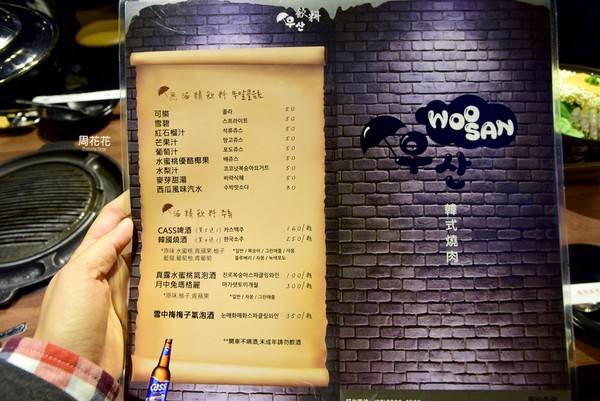 飲料
우산
無酒精飲料 무알콜음료
可樂 콜라 50
雪碧 스프라이트 50
紅石榴汁 석류쥬스 50
芒果汁 망고쥬스 50
葡萄汁 포도쥬스 50
水蜜桃優酪椰果 코코넛복숭아요거트 50
水梨汁 배쥬스 50
麥芽甜湯 비락식혜 50
西瓜風味汽水 수박맛소다 80
酒精飲料 주류
CASS啤酒 (買5送1) 카스맥주 160/瓶
韓國燒酒 한국소주 250/瓶
*原味,水蜜桃,青蘋果,柚子 *일반 / 복숭아 / 그린애플 / 자몽
藍莓,葡萄柚,青葡萄 블루베리 / 자몽 / 녹색포도
真露水蜜桃氣泡酒 진로복숭아스파클링와인 100/瓶
月中兔瑪格麗 마가렛토끼개월 300/瓶
*原味,柚子,青蘋果 *일반 / 자몽 / 그린애플
雪中梅梅子氣泡酒 눈매화매화스파클링와인 350/瓶
**開車不喝酒,未成年請勿飲酒
Cass
WOO
SAN
우산
韓式燒肉
周花花